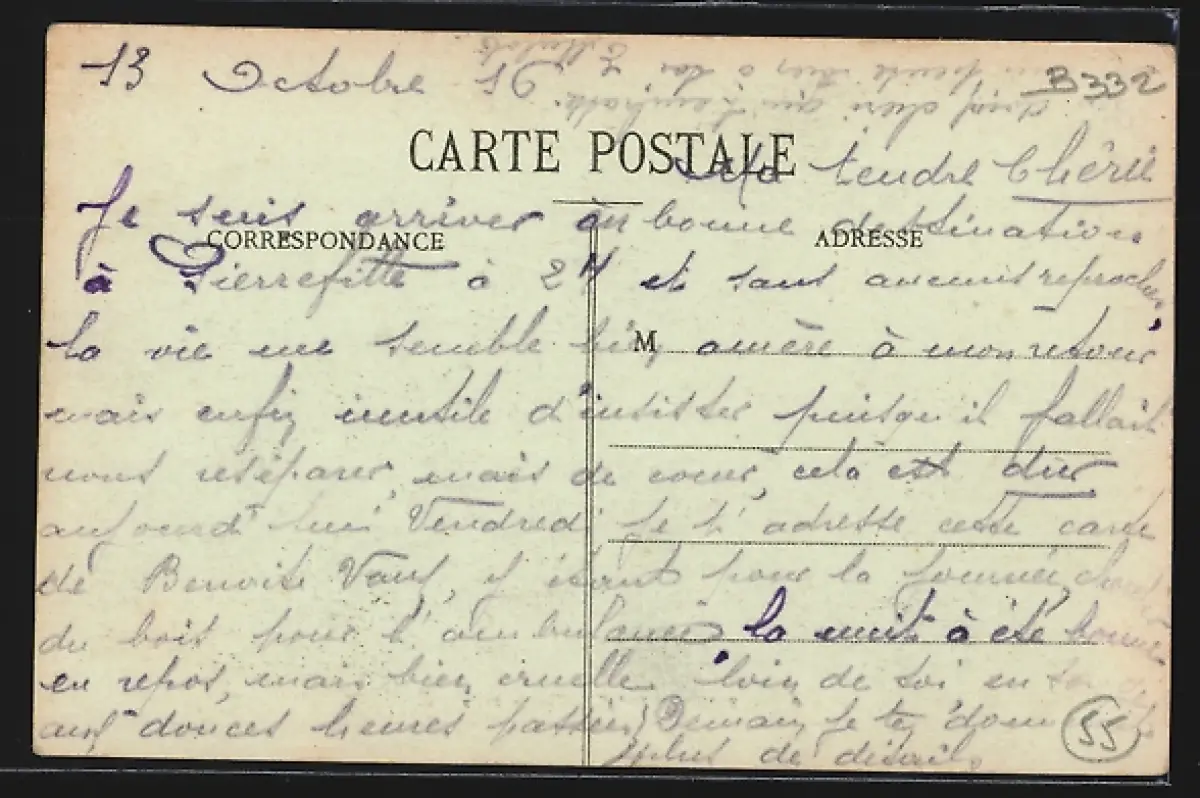 13 Octobre 16
B332
CARTE POSTALE
Ma tendre Chérie
Je suis arriver en bonne destination
CORRESPONDANCE
ADRESSE
à Pierrefitte à 2H et sans aucuns reproches,
M
la vie me semble bien amère à mon retour
mais enfin inutile d'insister puisqu'il fallait
nous reséparer, mais de coeur, cela est dur
aujourd'hui Vendredi je t'adresse cette carte
de Benoite Vaux, y étant pour la journée,
du bois pour l'ambulance la nuit à été bonne
en repos, mais bien cruelle loin de toi en
aux douces heures passées. Demain je t'en
plus de détails
55